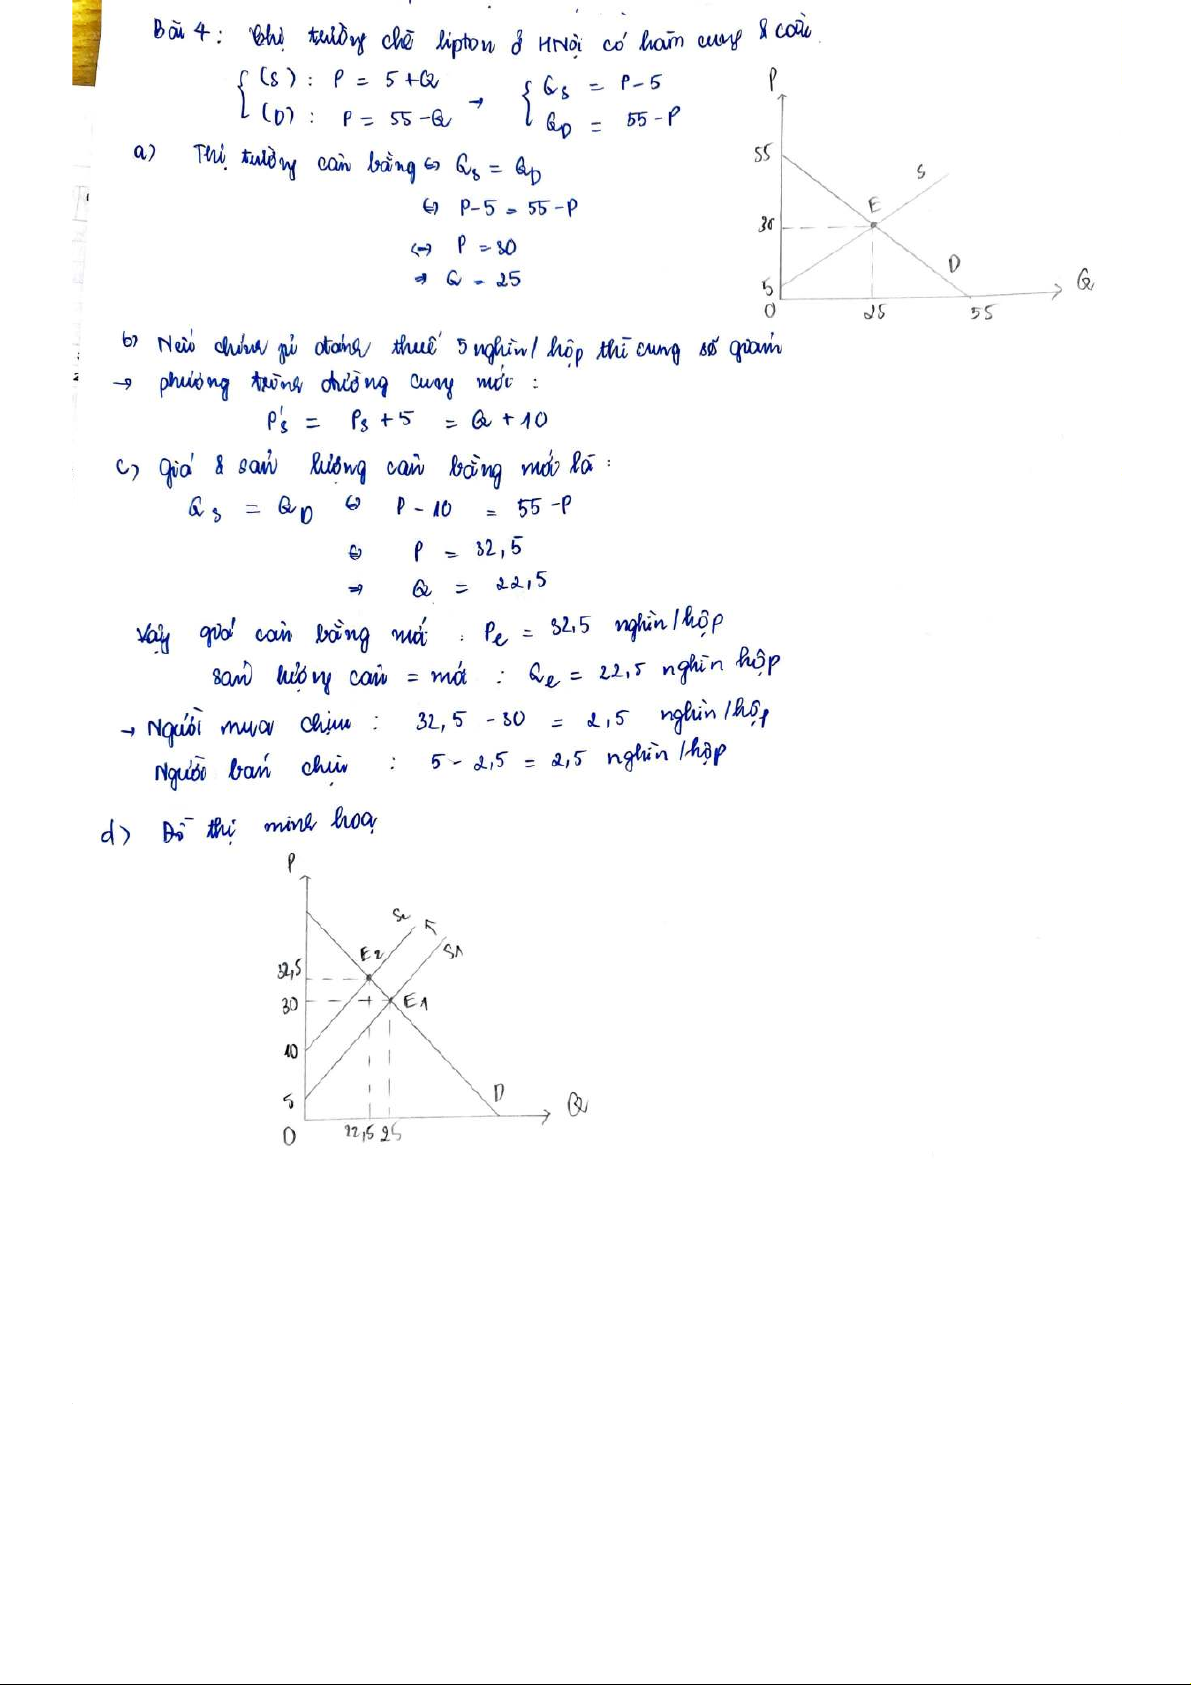 Bài 4: Thị trường chè lipton ở HNội có hàm cung & cầu.
(S): P = 5 + Q → Qs = P - 5
(D): P = 55 - Q QD = 55 - P
a) Thị trường cân bằng ⇔ Qs = QD
⇔ P - 5 = 55 - P
⇔ P = 30
⇒ Q = 25
P
55
S
E
30
D
5
Q
0 25 55
b) Nếu chính phủ đánh thuế 5 nghìn/hộp thì cung sẽ giảm
→ phương trình đường cung mới:
P's = Ps + 5 = Q + 10
c) Giá & sản lượng cân bằng mới là:
Qs = QD ⇔ P - 10 = 55 - P
⇔ P = 32,5
⇒ Q = 22,5
Vậy giá cân bằng mới: Pe = 32,5 nghìn/hộp
sản lượng cân = mới: Qe = 22,5 nghìn hộp
→ Người mua chịu: 32,5 - 30 = 2,5 nghìn/hộp
Người bán chịu: 5 - 2,5 = 2,5 nghìn/hộp
d) Đồ thị minh hoạ
P
S2
E2 S1
32,5
30 E1
10
5 D
Q
0 22,5 25